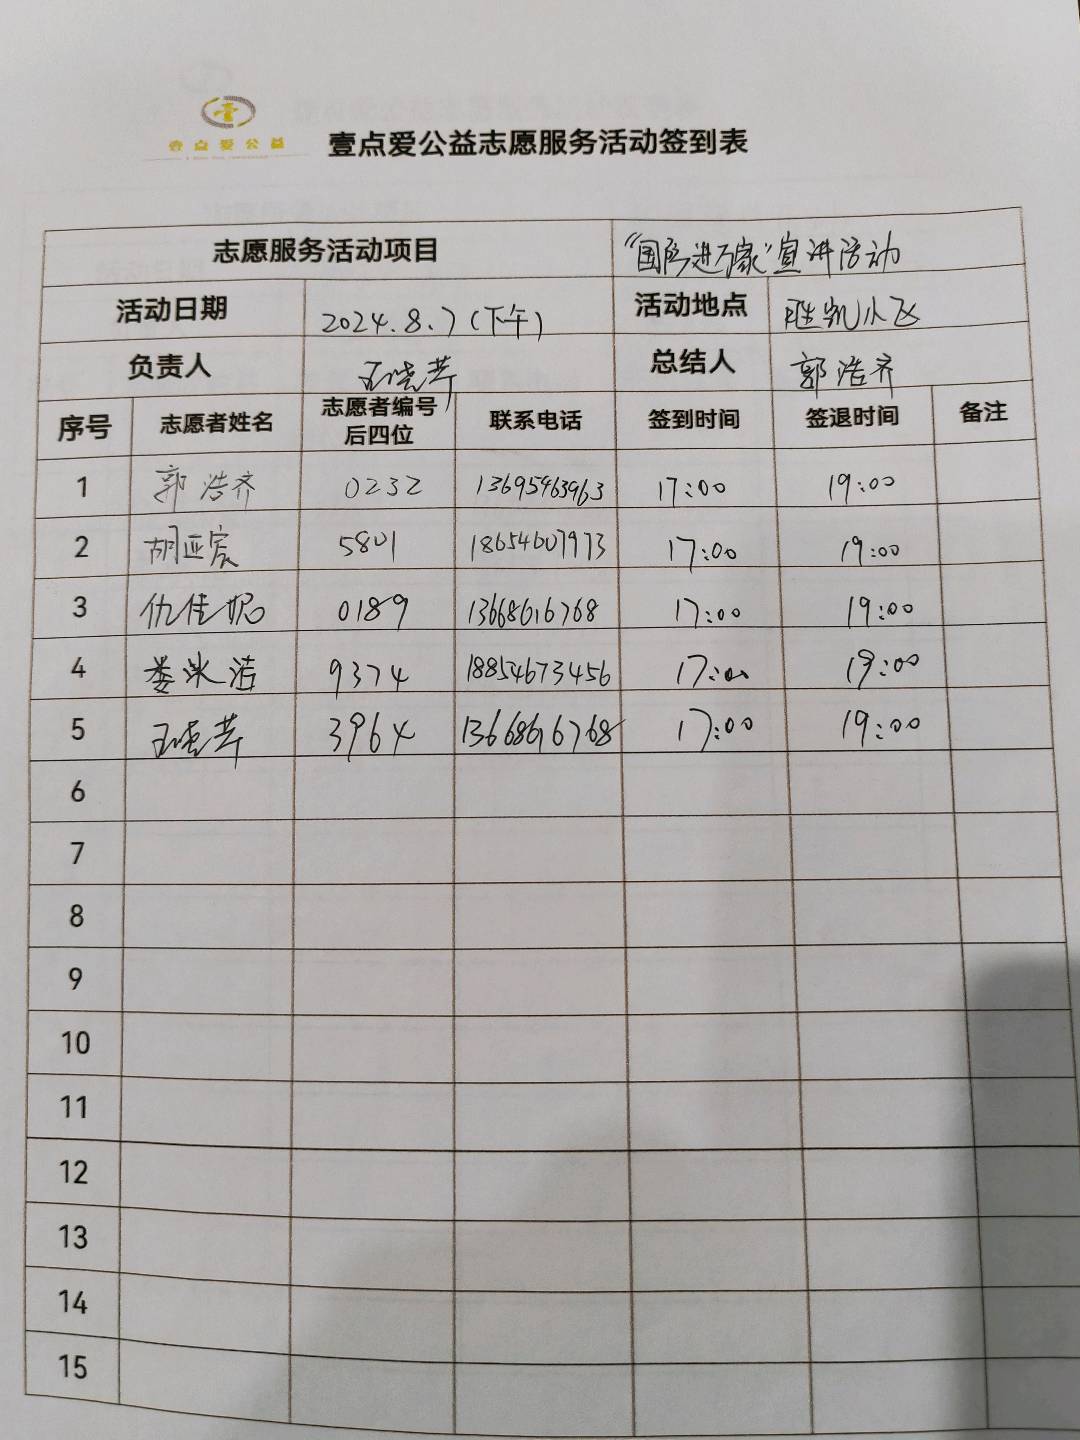 壹点爱公益
壹点爱公益志愿服务活动签到表
志愿服务活动项目 “国防进万家”宣讲活动
活动日期 2024.8.7(下午) 活动地点 胜凯小区
负责人 王晓芹 总结人 郭浩齐
序号 志愿者姓名 志愿者编号后四位 联系电话 签到时间 签退时间 备注
1 郭浩齐 0232 13695463963 17:00 19:00
2 胡亚宸 5801 18654607973 17:00 19:00
3 仇佳妮 0189 13668616768 17:00 19:00
4 娄冰洁 9374 18854673456 17:00 19:00
5 王晓芹 3964 13668616768 17:00 19:00
6
7
8
9
10
11
12
13
14
15